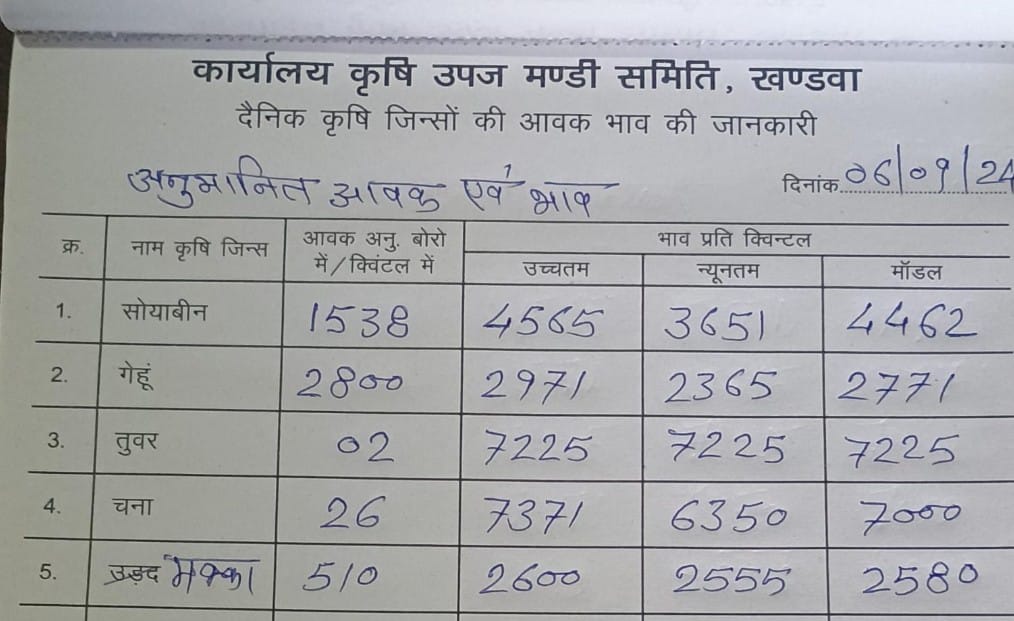 कार्यालय कृषि उपज मण्डी समिति, खण्डवा
दैनिक कृषि जिन्सों की आवक भाव की जानकारी
अनुमानित आवक एवं भाव दिनांक 06/09/24
क्र. नाम कृषि जिन्स आवक अनु. बोरो में/क्विंटल में भाव प्रति क्विन्टल
उच्चतम न्यूनतम मॉडल
1. सोयाबीन 1538 4565 3651 4462
2. गेहूं 2800 2971 2365 2771
3. तुवर 02 7225 7225 7225
4. चना 26 7371 6350 7000
5. उड़द मक्का 510 2600 2555 2580